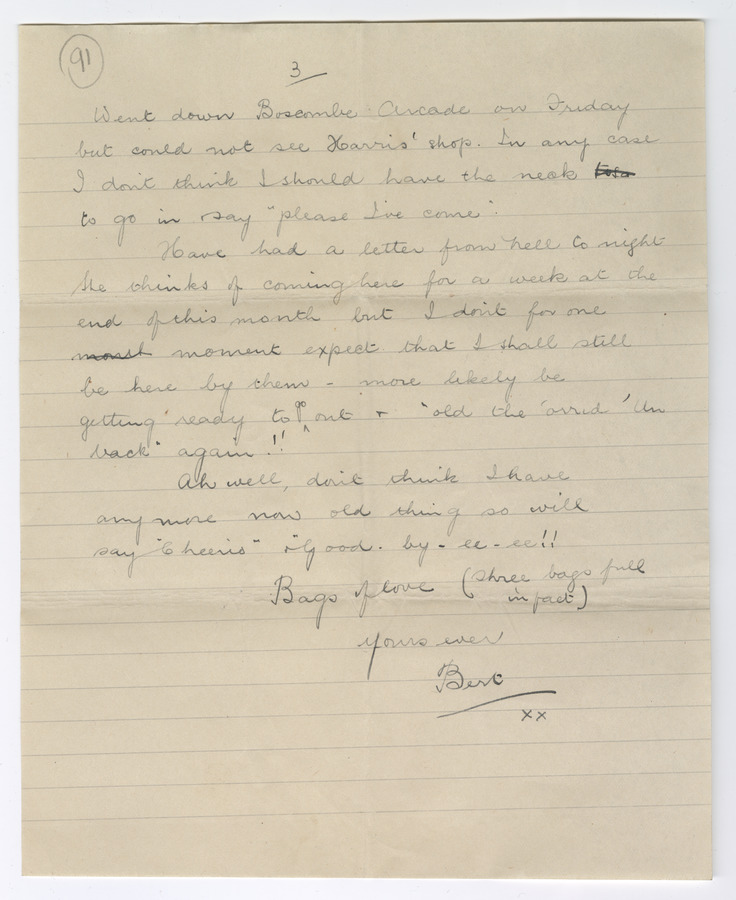 91
3
Went down Boscombe Arcade on Friday
but could not see Harris' shop. In any case
I don't think I should have the neck
to go in & say "please I've come".
Have had a letter from Nell to night
She thinks of coming here for a week at the
end of this month but I don't for one
moment expect that I shall still
be here by them - more likely be
getting ready to go out & "'old the 'orrid 'Un
back" again!!
Ah well, don't think I have
any more now old thing so will
say "Cheerio" & "Good-by-ee-ee!!
Bags of love (three bags full
in fact)
Yours ever
Bert
xx